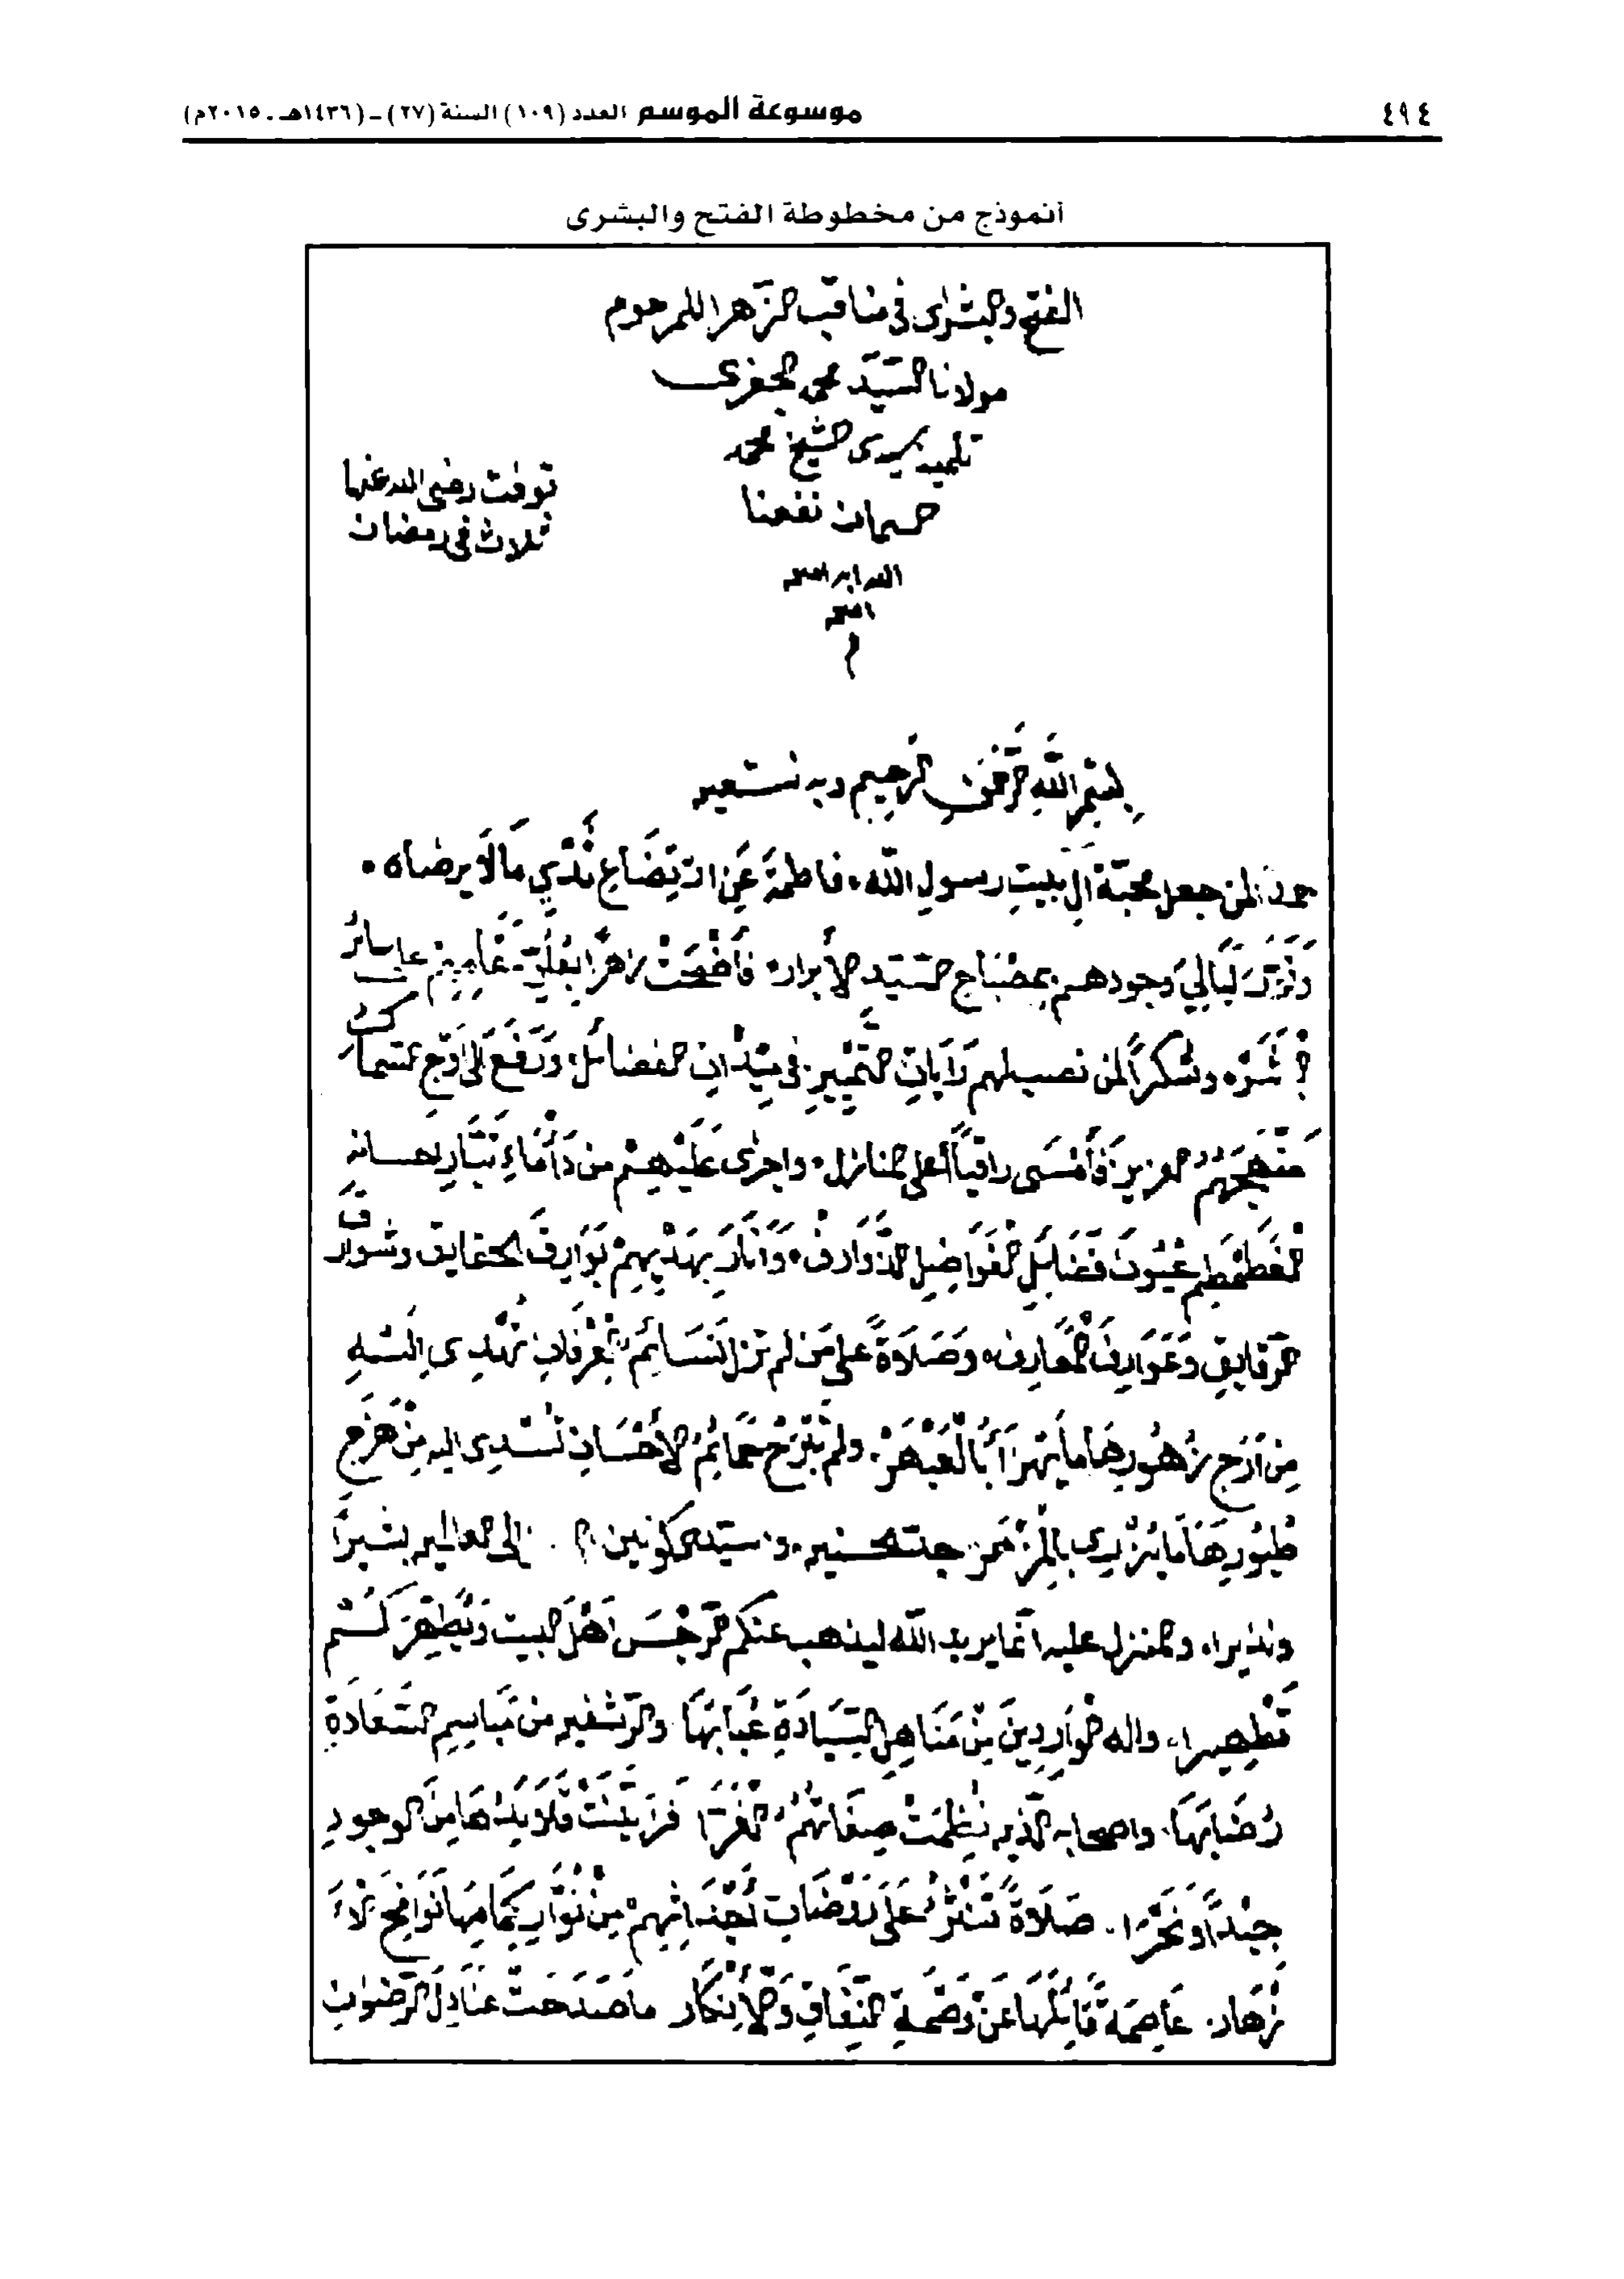 ٤٩٤
موسوعة الموسم العدد (١٠٩) السنة (٢٧) - (١٤٣٦هـ - ٢٠١٥م)
أنموذج من مخطوطة الفتح والبشرى
الفتح والبشرى في مناقب الزهرا للمرحوم
مولانا السيد محمد الجفري
تلميذ سيدى الشيخ محمد
نفعنا
الله
توفت رضى الله عنها
ثلاث فى رمضان
بِسْمِ اللَّهِ الرَّحْمَنِ الرَّحِيمِ وبه نستعين
حمدا لمن جعل محبَّة آلِ بَيْتِ رسولِ اللّه، فاطمَة عَنِ ارْتِضَاعِ ثَدْيِ مَا لَا يرضاه
لَيَالِيَ وجودهم بمِصْبَاحِ السَّيِّد الأَبرار
وشكراً لمن نصب لهم رَايَاتِ التَّمْيِيزِ في مَيْدَانِ الفضائل، وَرَفَعَ إلى أوْجِ
العزيز فَأَمْسَى راقِياً أعلى المنازل، واجرى عَلَيْهِم من دَأْمَاءِ تَيَّارِ احسانه
فَضَائِلِ الفَوَاضِلِ وَأَنَارَ بِهَدْيِهِمْ بَوَارِقَ الحقايق وشوارق
الرقايق وَعَوَارِفَ المعارف، وَصَلَاةً على مَن لم تزل نَسَائِمُ العِرْفَانِ تُهْدِى إليه
مِن أَرَجِ زُهُورِهَا ما يَهْزَأُ بِالْعَبْهَرْ، ولم تَبْرَحْ حَمَائِمُ الأِحْسَانِ تُسْدِى اليه مِنْ هَزَجِ
طُيُورِهَا مَا يُزْرِي بِالْمِزْهَر، جد الحسنين، وسيد الكونين إلى العالمين بشيراً
ونذيرا، والمنزل عليه انَّما يريد اللّه ليذهب عنكم الرِّجْسَ أَهْلَ البيت وَيُطَهِّرَكُمْ
تَطْهِيرا، واله الوَارِدِينَ مِنْ مَنَاهِلِ السِّيَادَةِ عُبَابَهَا والمرتشفين من مَبَاسِمِ السَّعَادَةِ
رُضَابَهَا، واصحابه الذين نُظِمَتْ صِفَاتُهُمُ الغَرَّا فَزَيَّنَتْ قَلَائِدُهَا مِنَ الوجودِ
جِيْداً وَنَحْرا، صَلَاةً تَنْثُرُ عَلَى رَوْضَاتِ أَجْدَاثِهِمْ مِنْ نُوَّارِ كِمَامِهَا نَوَافِحَ
أزهار، عَاصِمَةً قَائِلَهَا عَنْ وَصْمَةِ النِّفَاقِ وَالأِنْكَار ما صَدَحَتْ عَنَادِلُ الرِّضْوَانِ